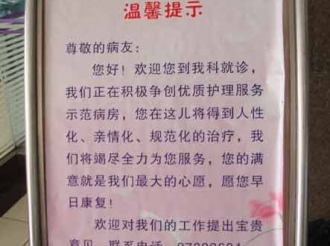 温馨提示
尊敬的病友：
您好！欢迎您到我科就诊，
我们正在积极争创优质护理服务
示范病房，您在这儿将得到人性
化、亲情化、规范化的治疗，我
们将竭尽全力为您服务，您的满
意就是我们最大的心愿，愿您早
日康复！
欢迎对我们的工作提出宝贵
意见，联系电话